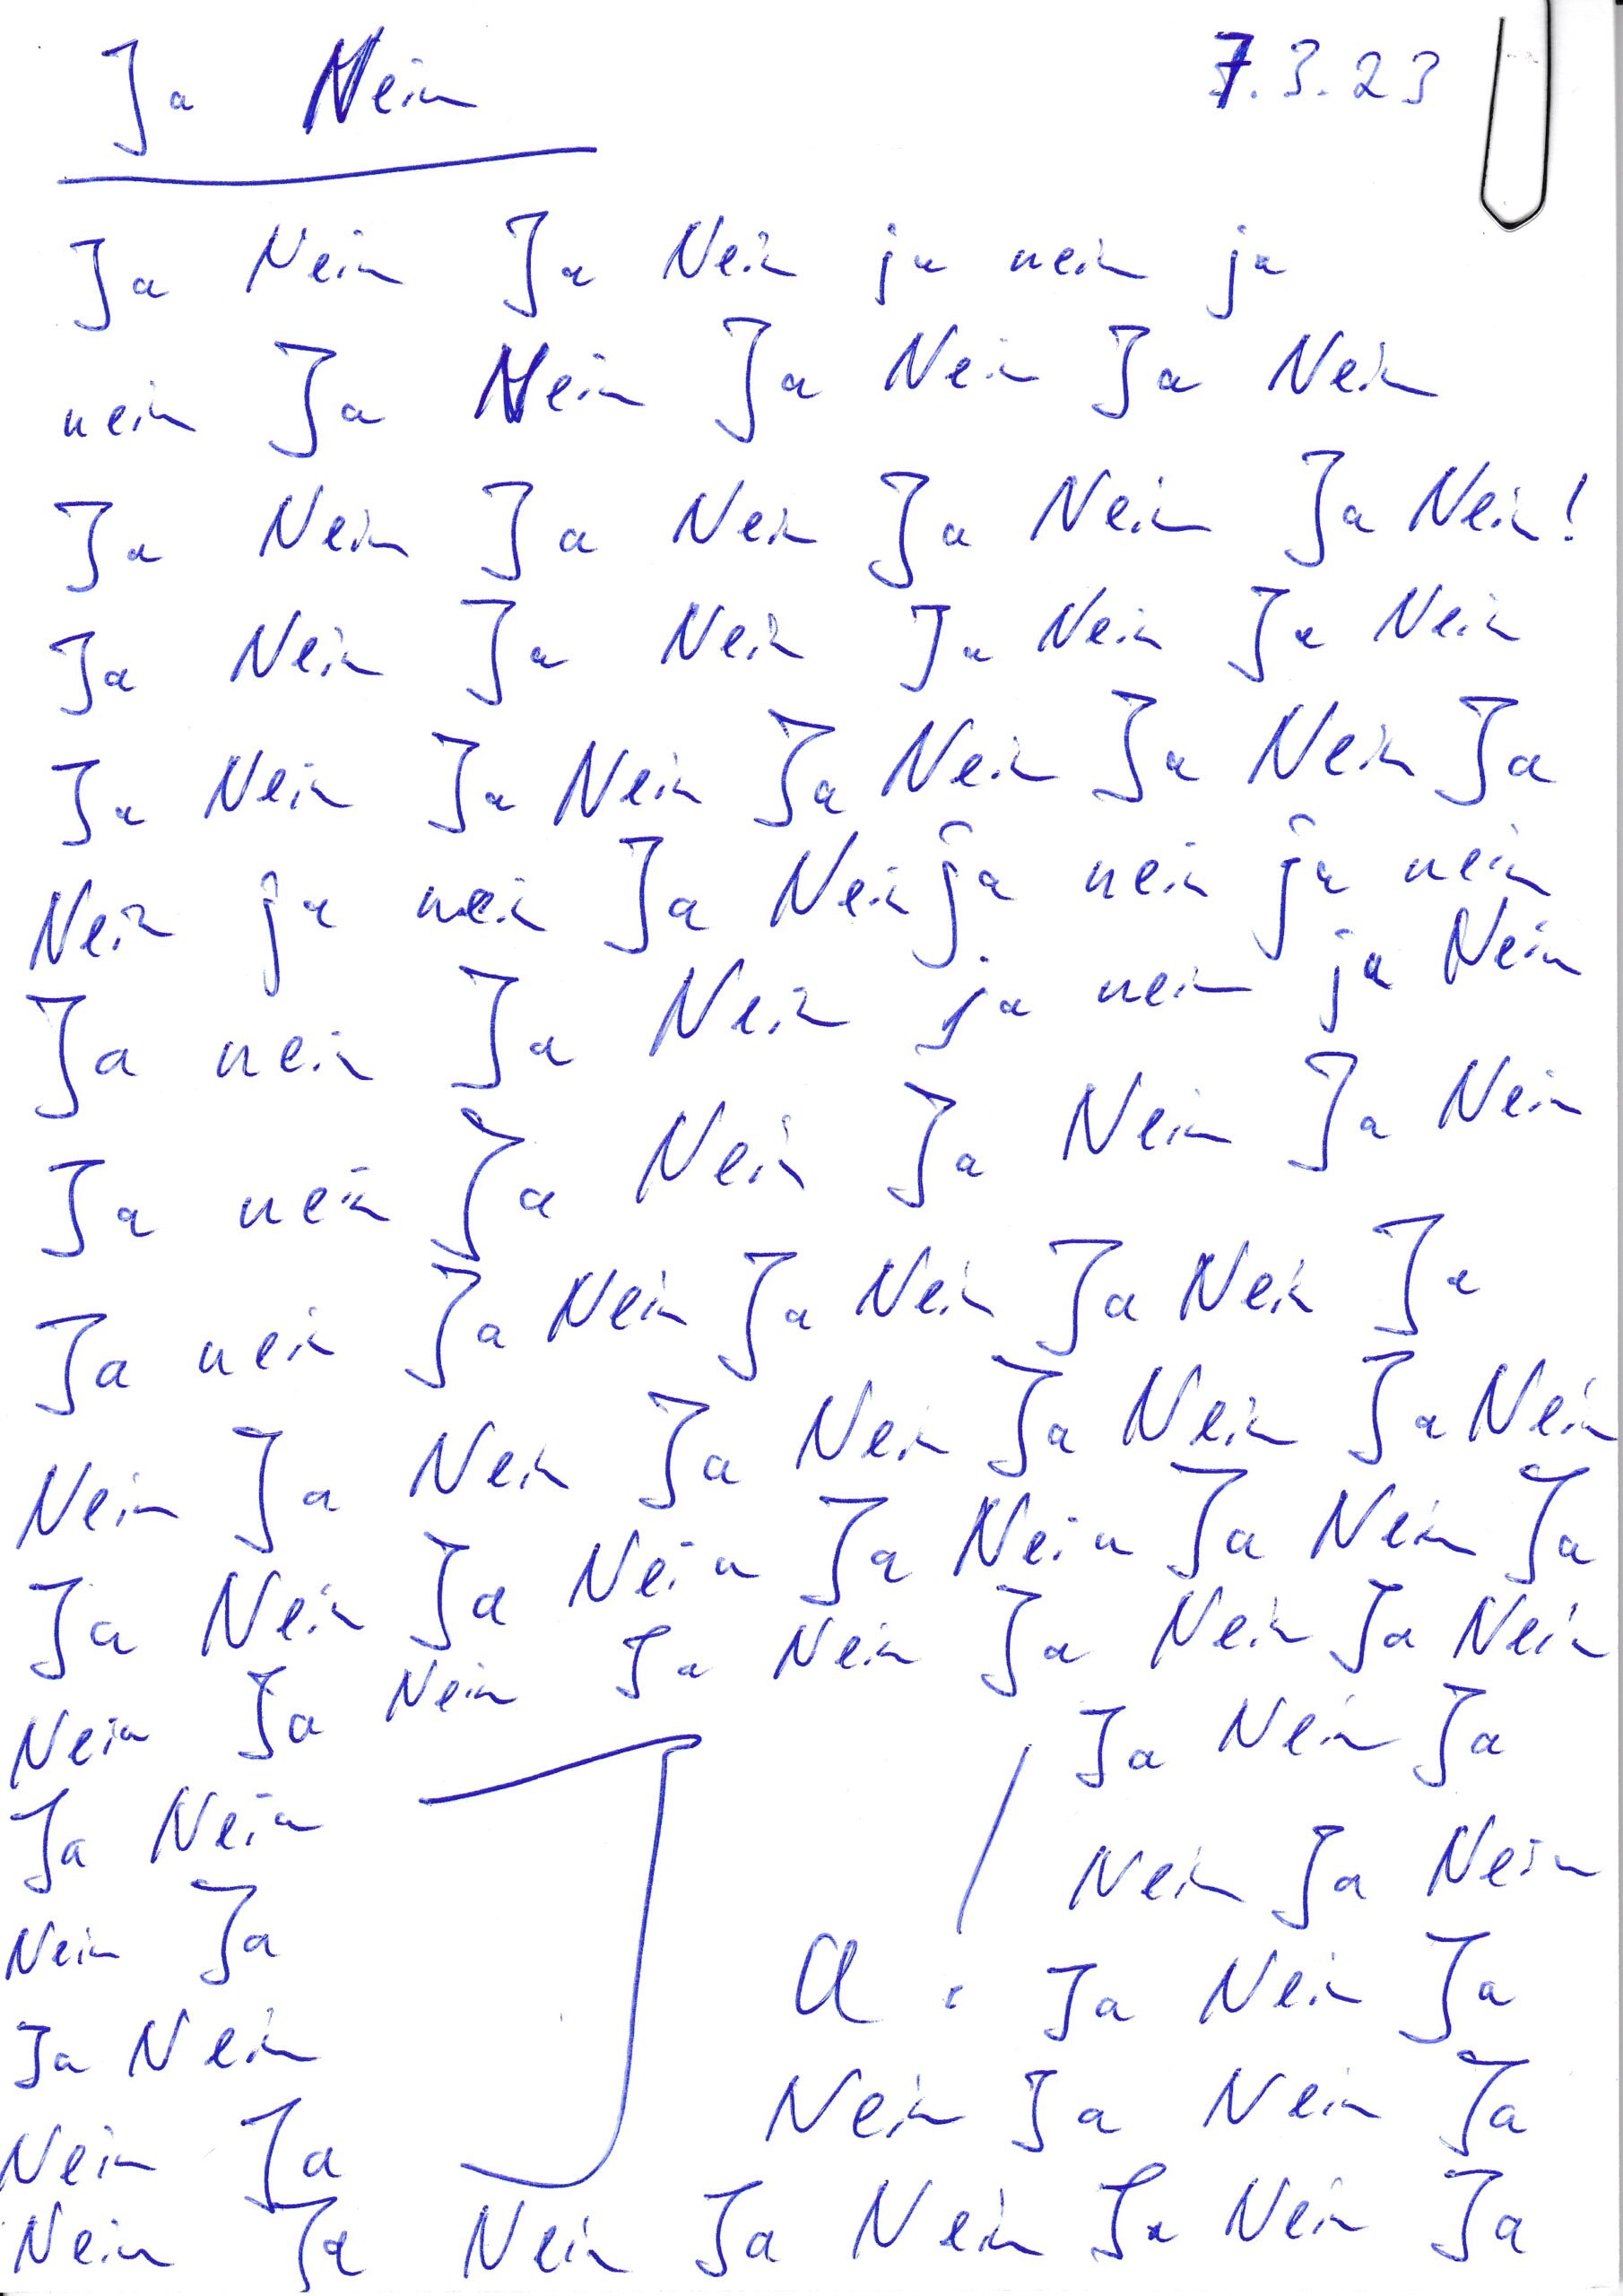 Ja Nein 7.3.23
Ja Nein Ja Nein ja nein ja
nein Ja Nein Ja Nein Ja Nein
Ja Nein Ja Nein Ja Nein Ja Nein!
Ja Nein Ja Nein Ja Nein Ja Nein
Ja Nein Ja Nein Ja Nein Ja Nein Ja
Nein ja nein Ja Nein ja nein ja nein
Ja nein Ja Nein ja nein ja Nein
Ja nein Ja Nein Ja Nein Ja Nein
Ja nein Ja Nein Ja Nein Ja Nein Ja
Nein Ja Nein Ja Nein Ja Nein Ja Nein
Ja Nein Ja Nein Ja Nein Ja Nein Ja
Nein Ja Nein Ja Nein Ja Nein Ja Nein
Ja Nein
Nein Ja
Ja Nein
Nein Ja
Ja!
Ja Nein Ja
Nein Ja Nein
Ja Nein Ja
Nein Ja Nein Ja
Nein Ja Nein Ja Nein Ja Nein Ja